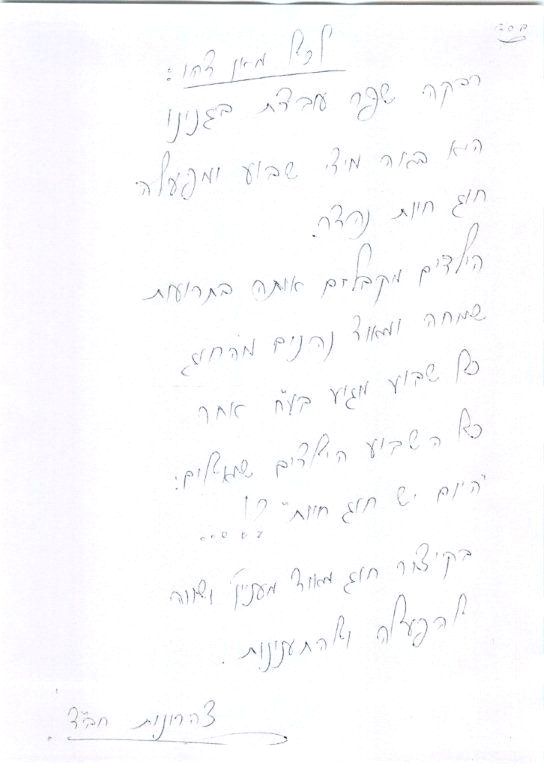 בס"ד
לכל מאן דהו:
רבקה שפר עובדת בגנינו
היא באה מידי שבוע ומפעילה
חוג חיות נהדר.
הילדים מקבלים אותה בתרועות
שמחה ומאוד נהנים מהחוג
כל שבוע מגיע בע"ח אחר
כל השבוע הילדים שואלים:
"היום יש חוג חיות" ?!
בקיצור חוג מאוד מעניין ושווה
להפעלה ולהתענינות.
צהרונות חב"ד